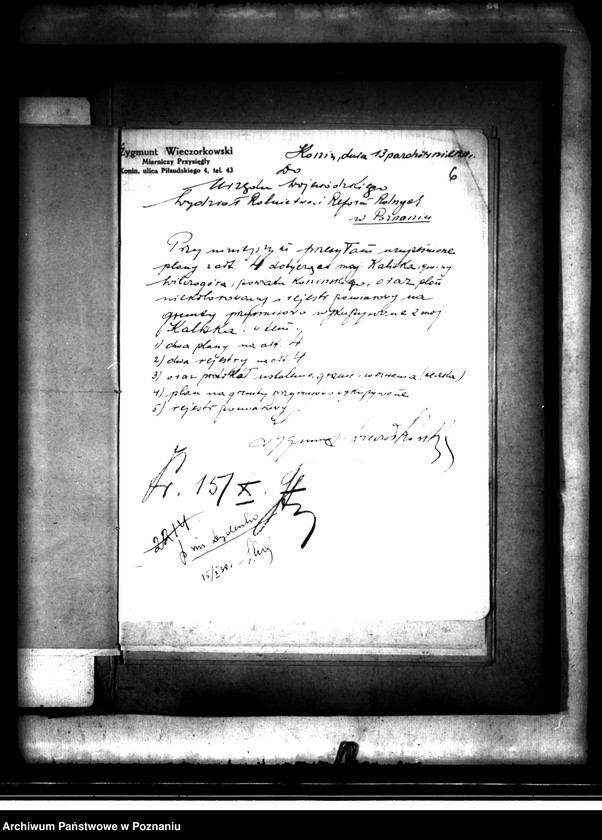 Zygmunt Wieczorkowski
Mierniczy Przysięgły
Konin, ulica Piłsudskiego 4, tel. 43
Konin, dnia 13 października
6
Do
Urzędu Wojewódzkiego
Wydział Rolnictwa i Reform Rolnych
w Poznaniu
Przy niniejszym przesyłam uzupełnione
plany ark. 4 dotyczące maj. Kaliska, gminy
Wilczogóra, powiatu konińskiego, oraz plan
niekolorowany i rejestr pomiarowy na
grunty przymusowo wykupywane z maj.
Kaliska.
1) dwa plany na ark. 4
2) dwa rejestry na ark. 4
3) oraz protokół ustalenia granic i wznowienia
4) plan na grunty przymusowo wykupywane
5) rejestr pomiarowy
Zygmunt Wieczorkowski
15/X.
15/X